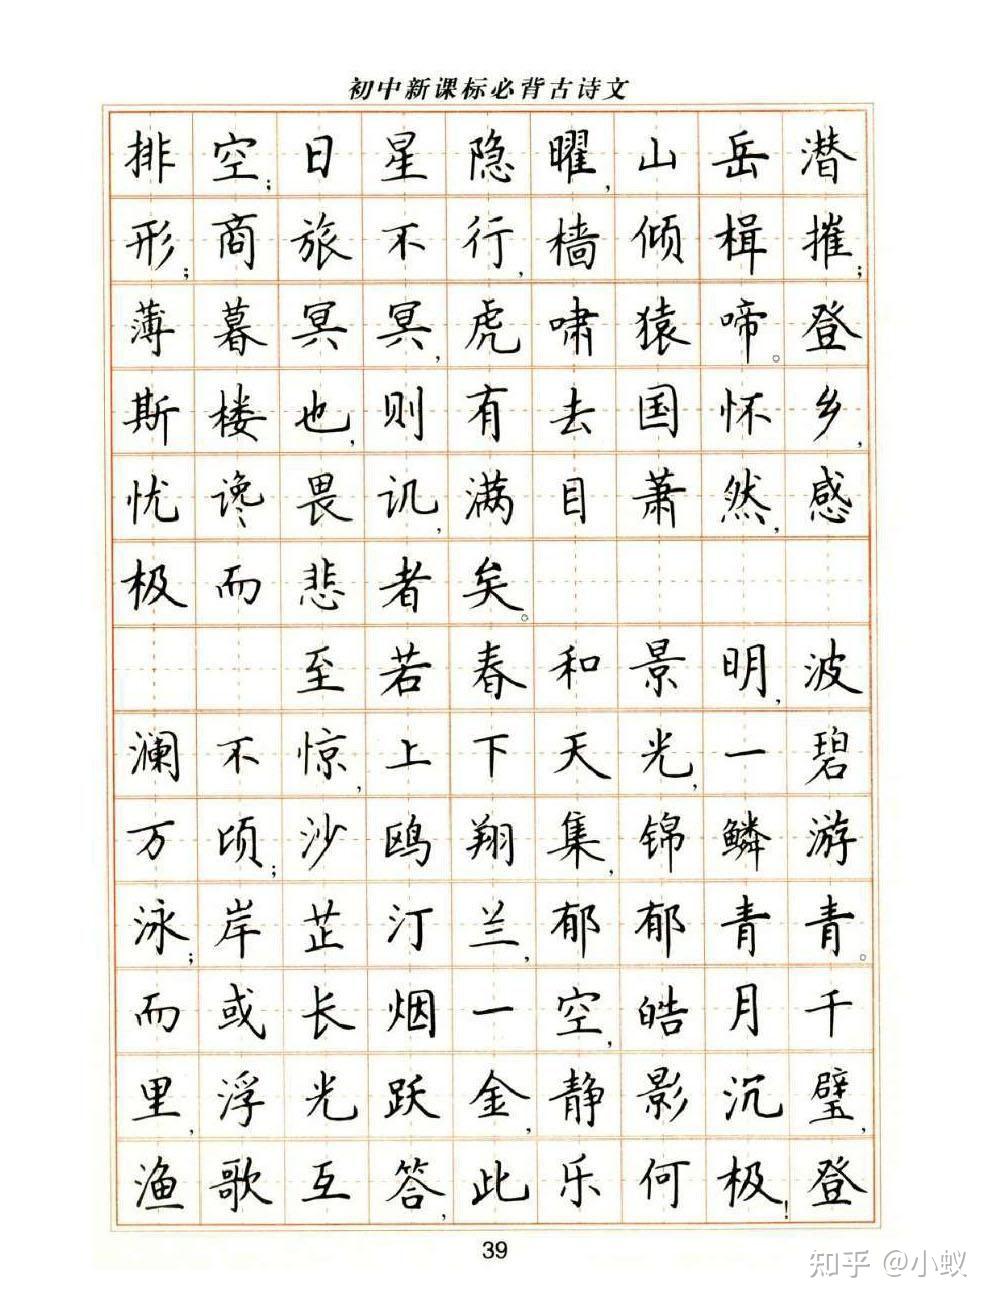 初中新课标必背古诗文
排空；日星隐曜，山岳潜
形；商旅不行，樯倾楫摧；
薄暮冥冥，虎啸猿啼。登
斯楼也，则有去国怀乡，
忧谗畏讥，满目萧然，感
极而悲者矣。
至若春和景明，波
澜不惊，上下天光，一碧
万顷；沙鸥翔集，锦鳞游
泳；岸芷汀兰，郁郁青青。
而或长烟一空，皓月千
里，浮光跃金，静影沉璧，
渔歌互答，此乐何极！登
39
知乎 @小蚁